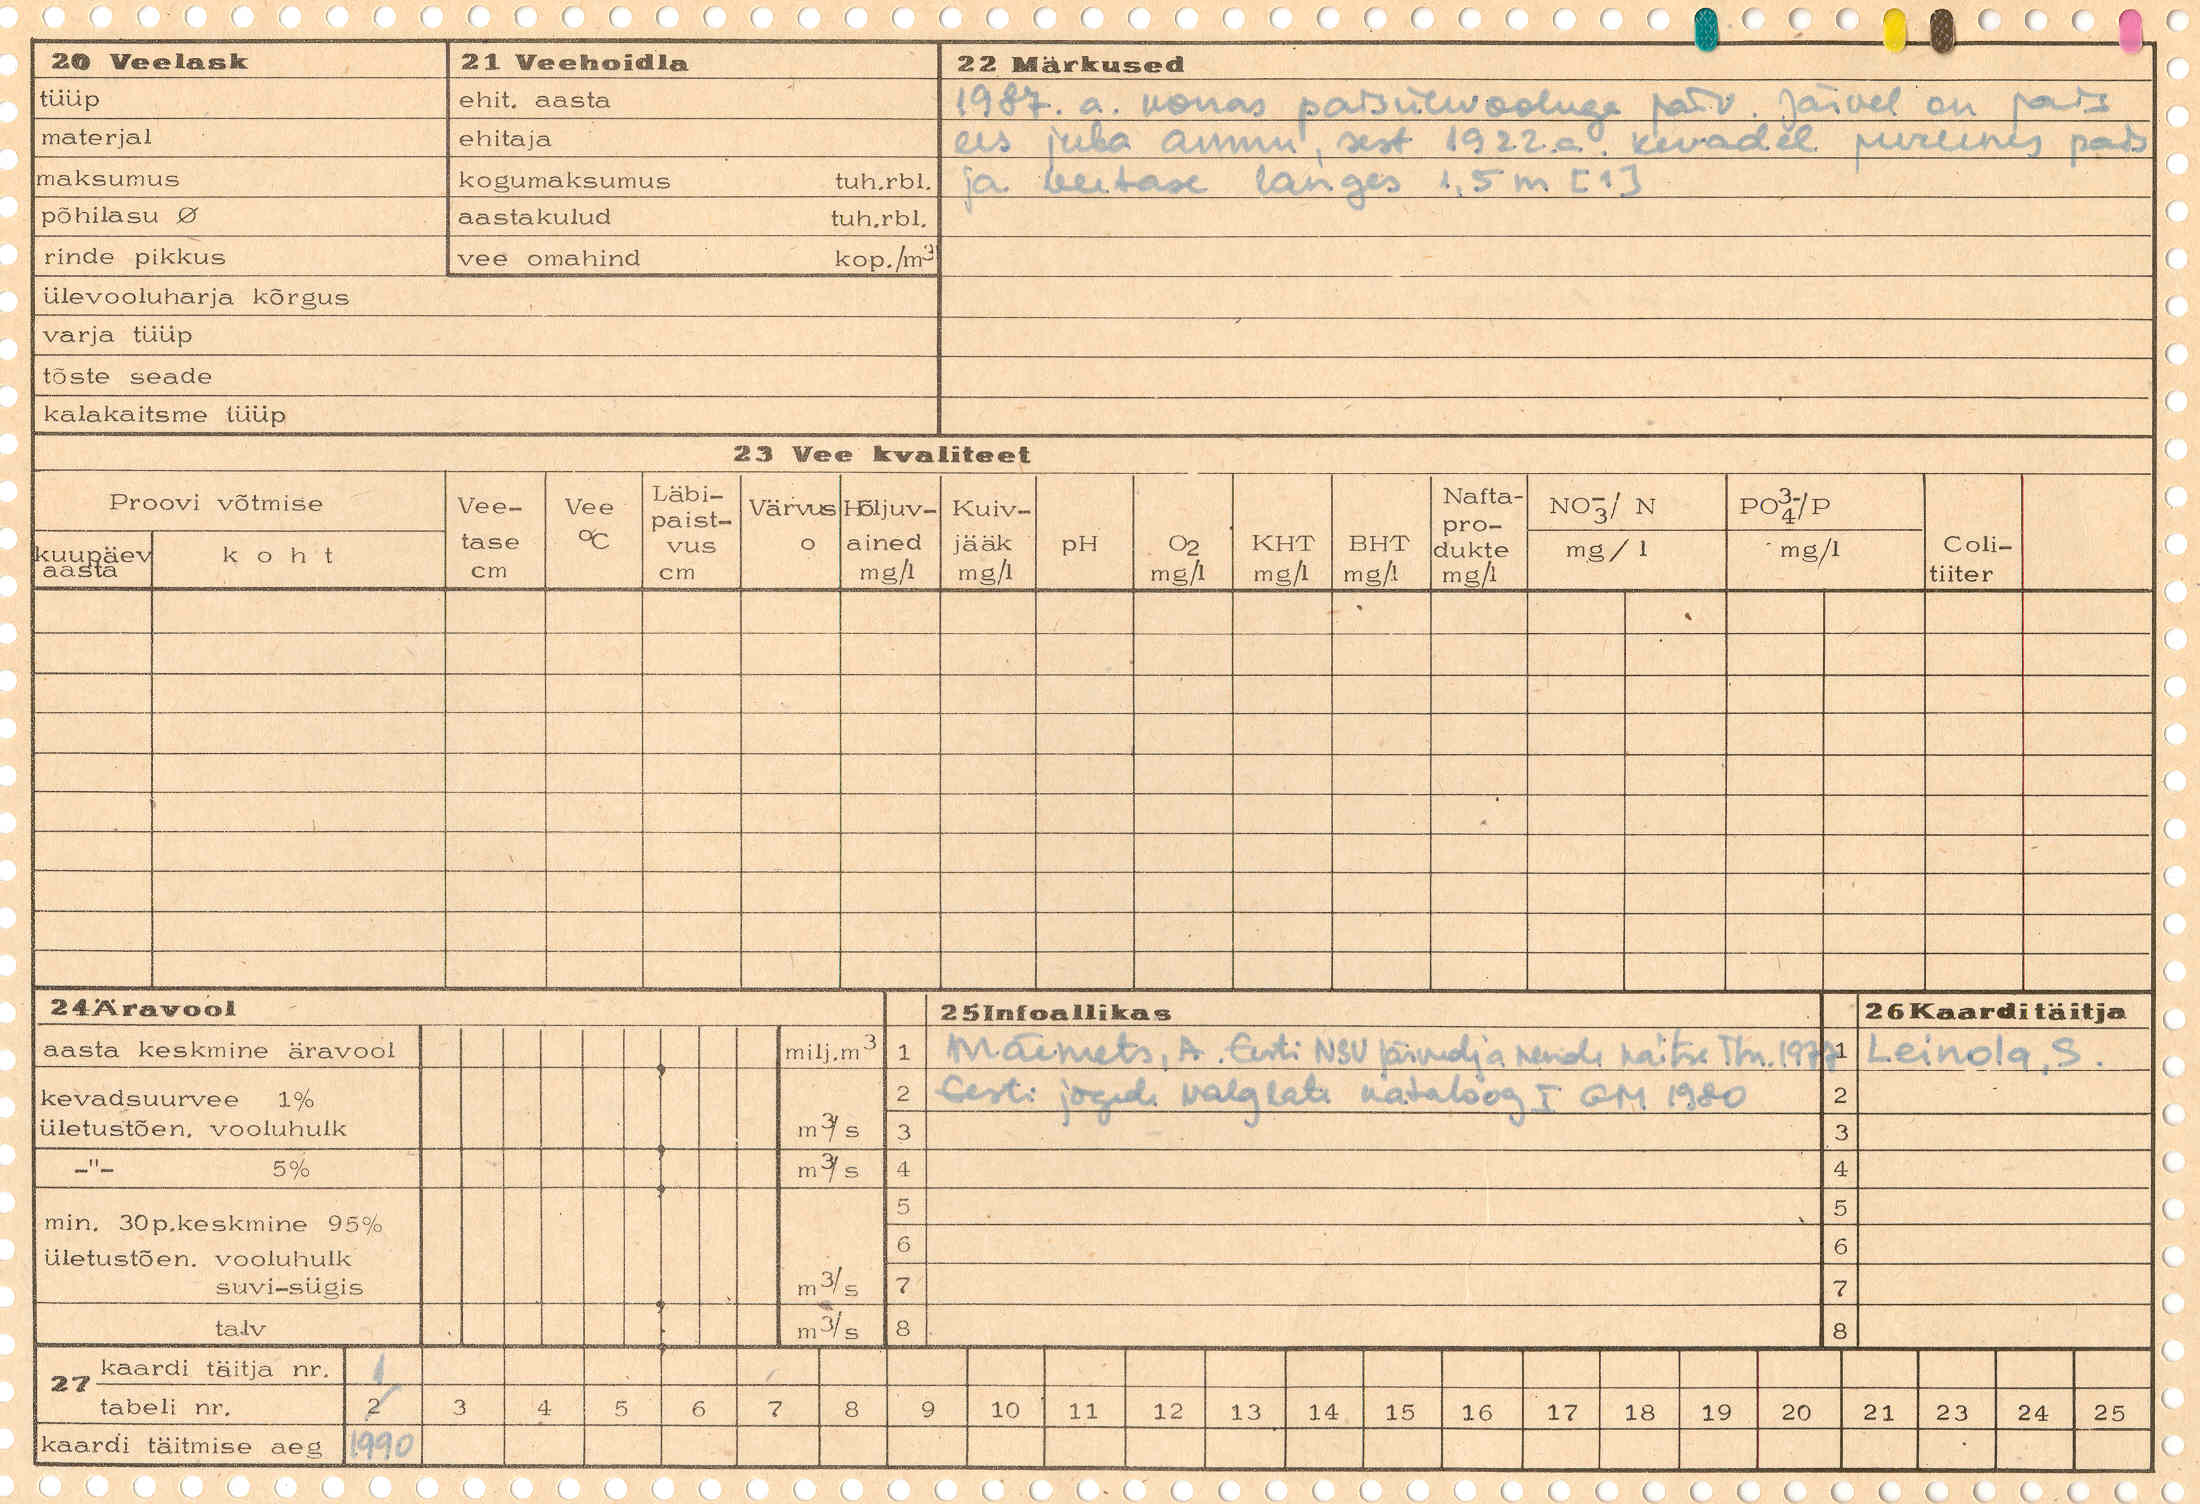 20 Veelask
tüüp
materjal
maksumus
põhilasu Ø
rinde pikkus
ülevooluharja kõrgus
varja tüüp
tõste seade
kalakaitsme tüüp
21 Veehoidla
ehit. aasta
ehitaja
kogumaksumus tuh.rbl.
aastakulud tuh.rbl.
vee omahind kop./m3
22 Märkused
1987. a. korras paisülevooluga järv. Järvel on pais
ees juba ammu, sest 1922.a. kevadel purunes pais
ja veetase langes 1,5 m [1]
23 Vee kvaliteet
Proovi võtmise
kuupäev aasta
koht
Vee-tase cm
Vee °C
Läbi-paist-vus cm
Värvus o
Hõljuv-ained mg/l
Kuiv-jääk mg/l
pH
O2 mg/l
KHT mg/l
BHT mg/l
Nafta-pro-dukte mg/l
NO3-/ N mg/l
PO4 3-/P mg/l
Coli-tiiter
24 Äravool
aasta keskmine äravool milj.m3
kevadsuurvee 1%
ületustõen. vooluhulk m3/s
-"- 5% m3/s
min. 30p.keskmine 95%
ületustõen. vooluhulk
suvi-sügis m3/s
talv m3/s
25 Infoallikas
1 Mäemets, A. Eesti NSV järved ja nende kaitse Tln. 1977
2 Eesti jõgede valglate kataloog I GM 1980
3
4
5
6
7
8
26 Kaarditäitja
1 Leinola, S.
2
3
4
5
6
7
8
27 kaardi täitja nr. 1
tabeli nr. 2 3 4 5 6 7 8 9 10 11 12 13 14 15 16 17 18 19 20 21 23 24 25
kaardi täitmise aeg 1990